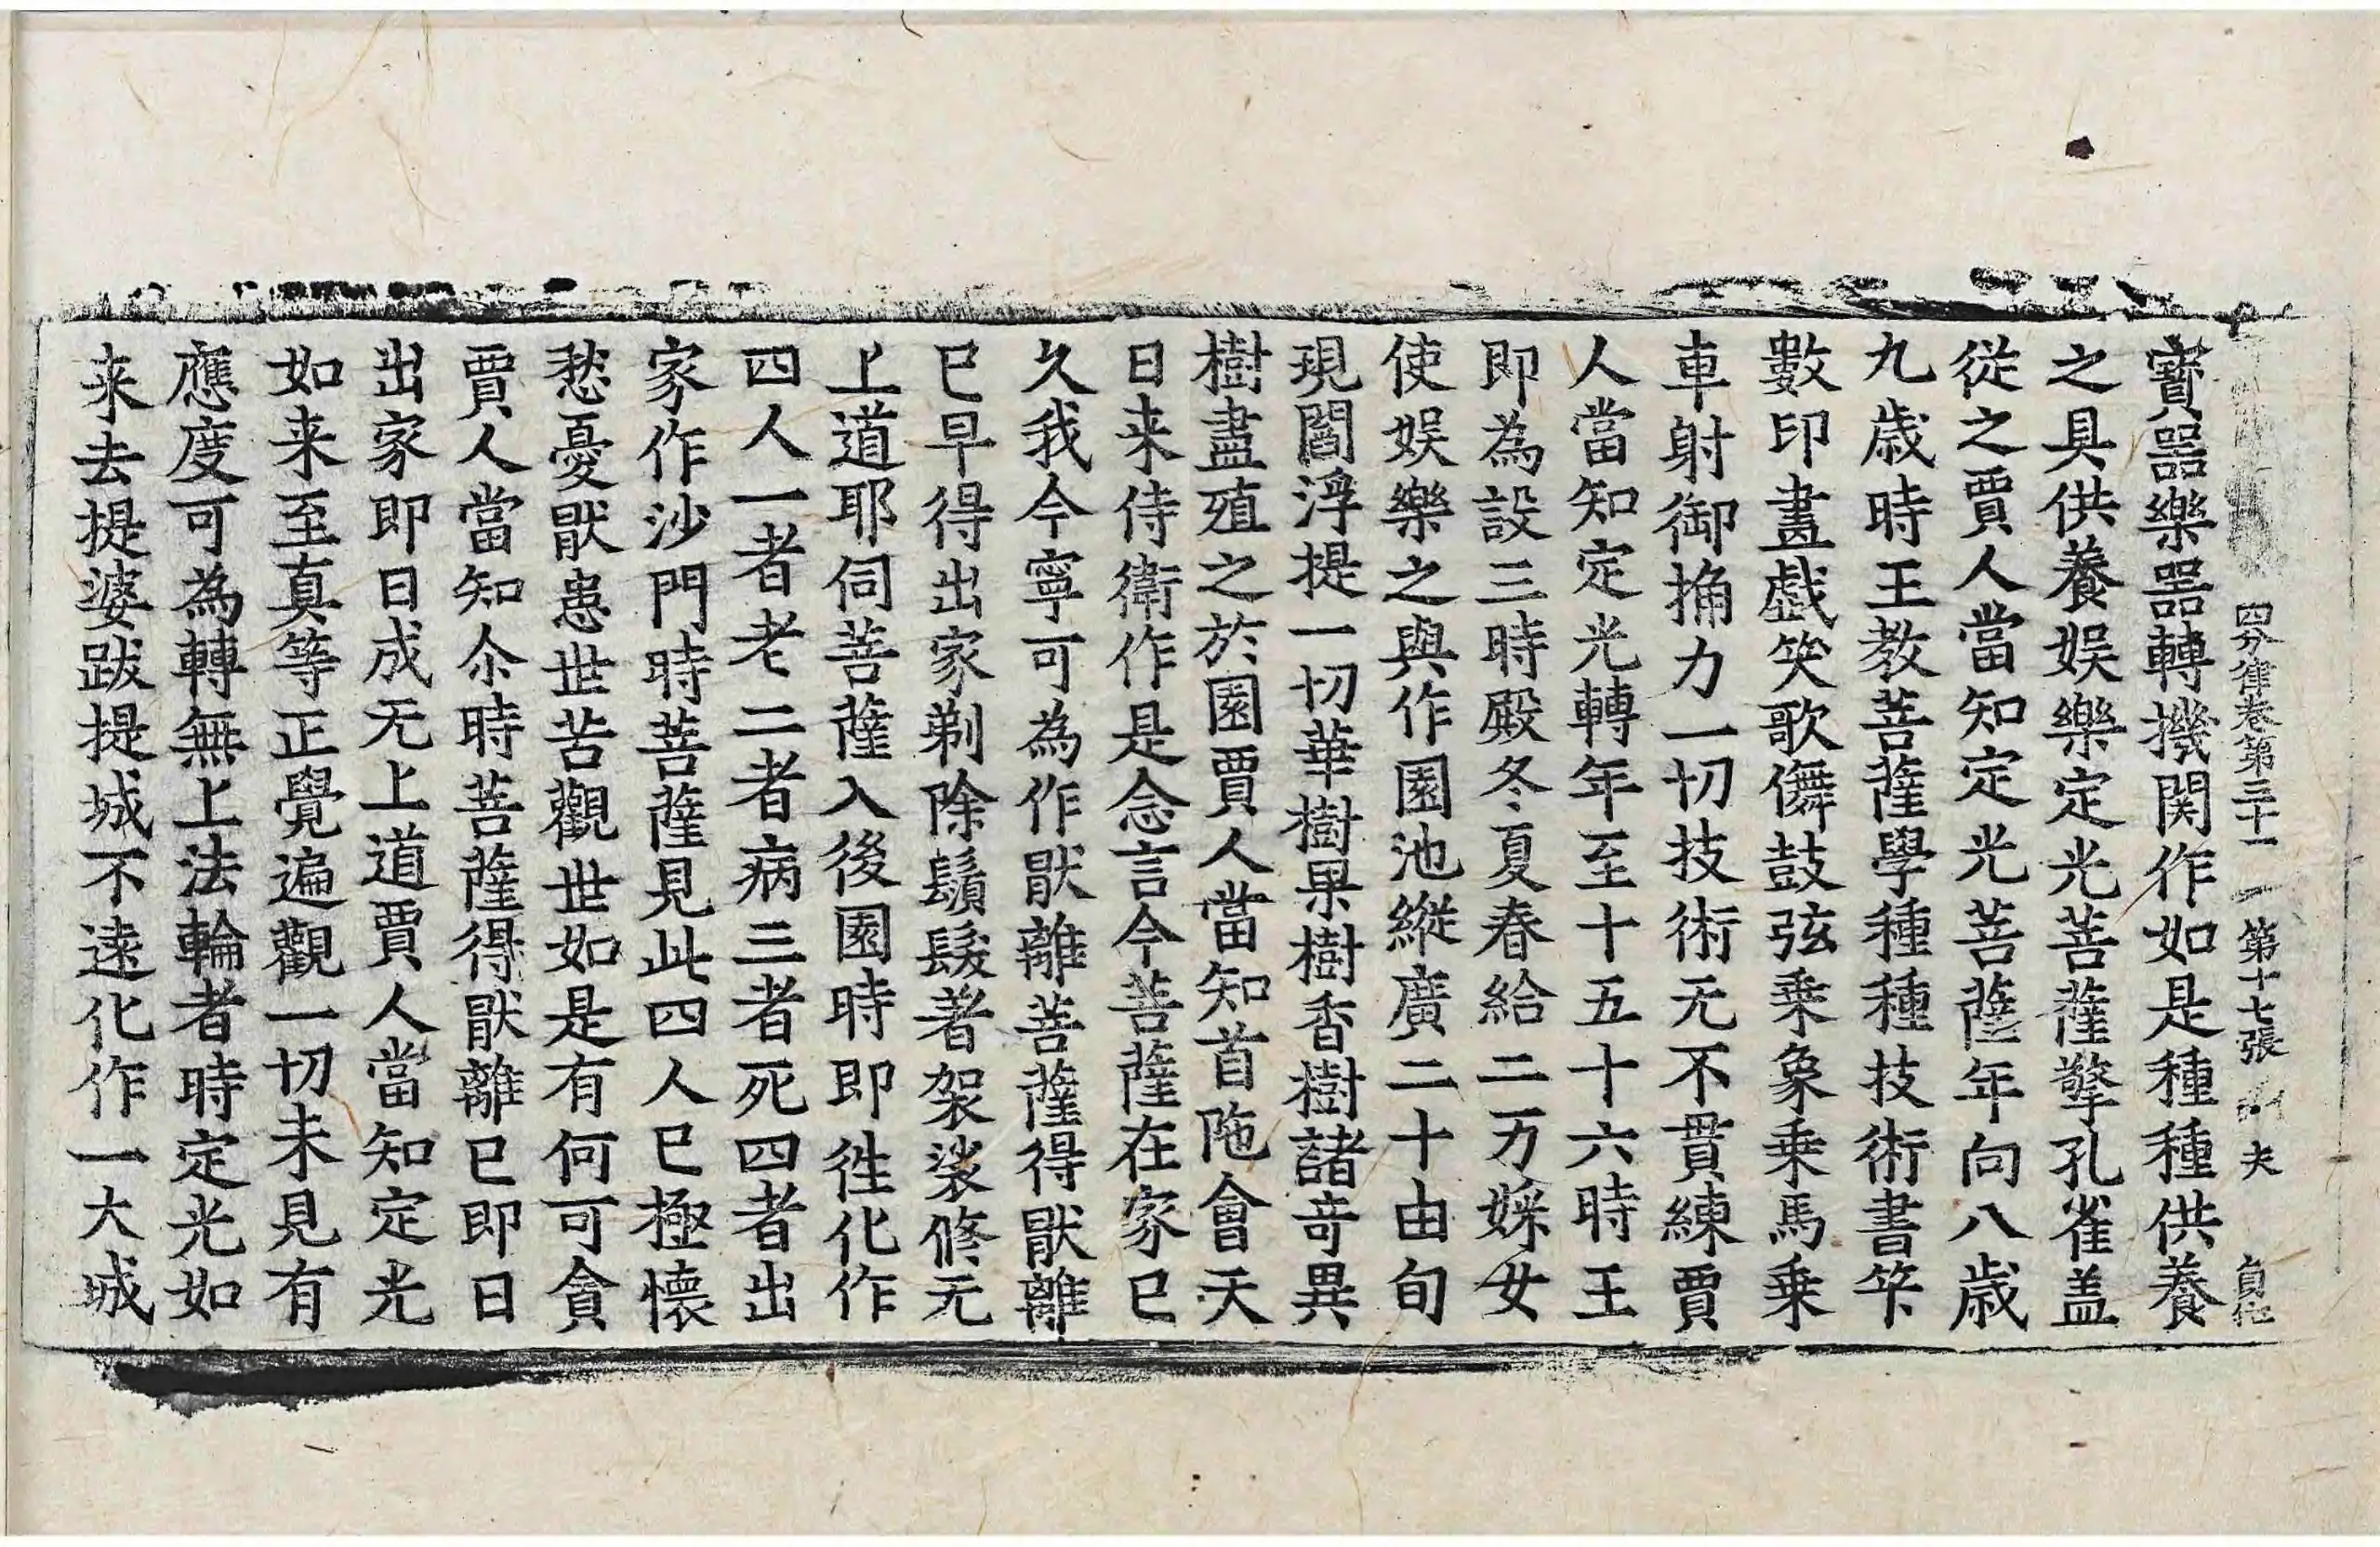 四分律卷第三十一 第十七張 夫
寶器樂器轉機関作如是種種供養
之具供養娱樂定光菩薩擎孔雀盖
從之賈人當知定光菩薩年向八歳
九歳時王教菩薩學種種技術書筭
數印畫戯笑歌儛鼓弦乗象乗馬乗
車射御捔力一切技術无不貫練賈
人當知定光轉年至十五十六時王
即為設三時殿冬夏春給二万婇女
使娱樂之與作園池縱廣二十由旬
現閻浮提一切華樹果樹香樹諸竒異
樹盡殖之於園賈人當知首陁會天
日来侍衛作是念言今菩薩在家已
久我今寧可為作猒離菩薩得猒離
已早得出家剃除鬚髮著袈裟修无
上道耶伺菩薩入後園時即徃化作
四人一者老二者病三者死四者出
家作沙門時菩薩見此四人已極懷
愁憂猒患世苦觀世如是有何可貪
賈人當知尒時菩薩得猒離已即日
出家即日成无上道賈人當知定光
如来至真等正覺遍觀一切未見有
應度可為轉無上法輪者時定光如
来去提婆跋提城不遠化作一大城